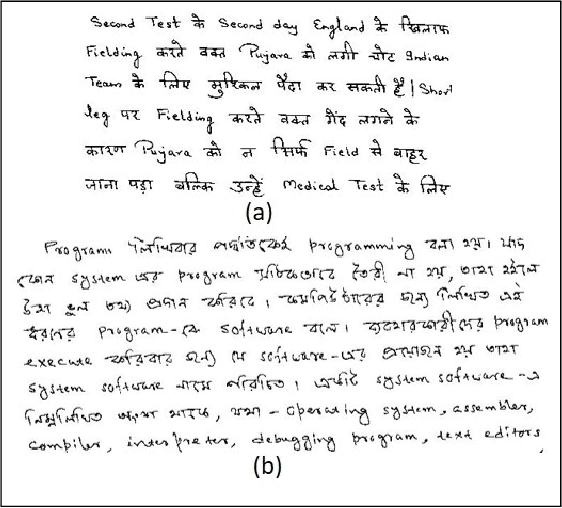 Second Test के Second day England के खिलाफ
Fielding करते वक्त Pujara को लगी चोट Indian
Team के लिए मुश्किल पैदा कर सकती है | Short
leg पर Fielding करते वक्त गेंद लगने के
कारण Pujara को न सिर्फ Field से बाहर
जाना पड़ा बल्कि उन्हें Medical Test के लिए
(a)
Program লিখিবার পদ্ধতিকেই programming বলা হয়। যদি
কোন system এর program সঠিকভাবে তৈরী না হয়, তাহা হইলে
ভুল তথ্য প্রদান করিবে। কমপিউটারের জন্য লিখিত এই
ধরনের program-কে software বলে। ব্যবহারকারীদের program
execute করিবার জন্য যে software-এর প্রয়োজন হয় তাহা
system software নামে পরিচিত। একটি system software-এ
নিম্নলিখিত থাকে, যথা - operating system, assembler,
compiler, interpreter, debugging program, text editors,
(b)